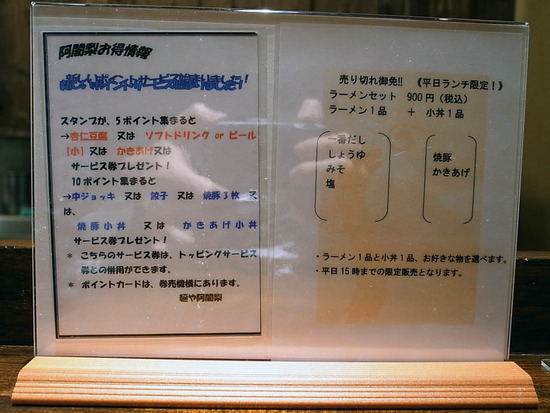 阿闍梨お得情報
新しいポイントサービス始まりました！
スタンプが、5ポイント集まると
→杏仁豆腐 又は ソフトドリンク or ビール
【小】 又は かきあげ又は
サービス券プレゼント！
10ポイント集まると
→中ジョッキ 又は 餃子 又は 焼豚3枚 又
は、
焼豚小丼 又は かきあげ小丼
サービス券プレゼント！
* こちらのサービス券は、トッピングサービス
券との併用ができます。
* ポイントカードは、券売機横にあります。
麺や阿闍梨
売り切れ御免!! 《平日ランチ限定！》
ラーメンセット 900円（税込）
ラーメン1品 ＋ 小丼1品
一番だし
しょうゆ
みそ
塩
焼豚
かきあげ
・ラーメン1品と小丼1品、お好きな物を選べます。
・平日15時までの限定販売となります。